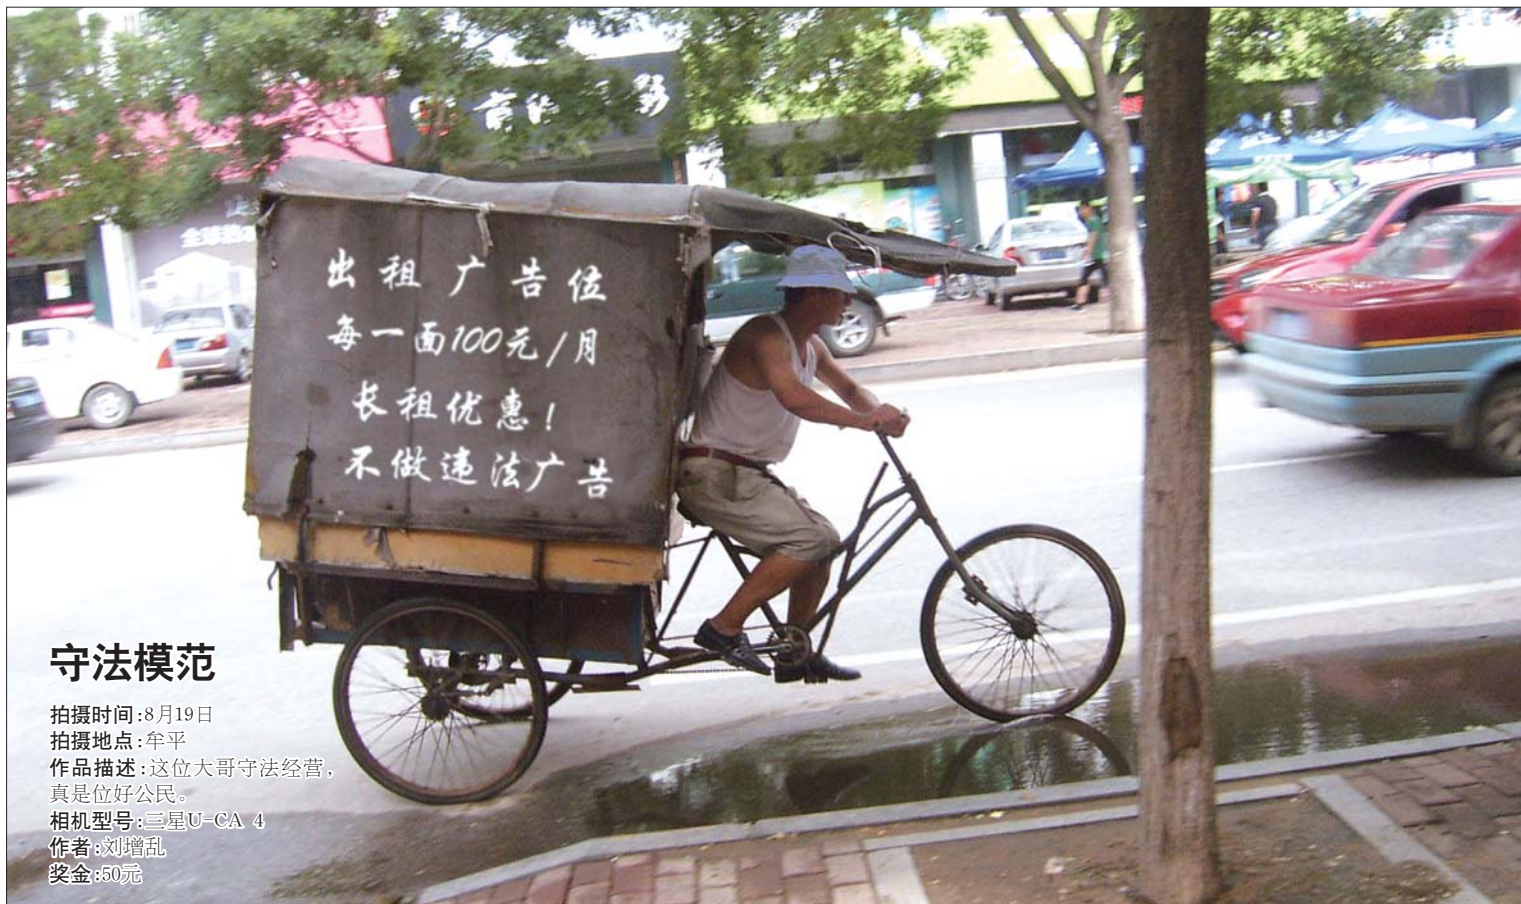 出租广告位
每一面100元/月
长租优惠!
不做违法广告
守法模范
拍摄时间:8月19日
拍摄地点:牟平
作品描述:这位大哥守法经营,
真是位好公民。
相机型号:三星U-CA 4
作者:刘增乱
奖金:50元